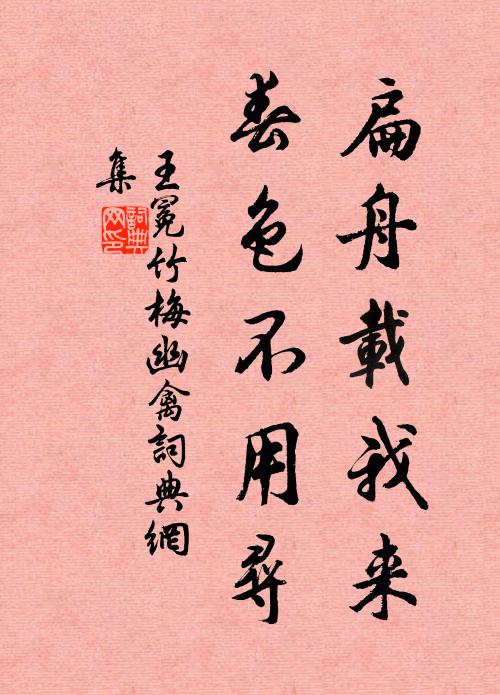 扁舟載我来
春色不用尋
王冕竹梅幽禽詞典網
集
詞典
网印